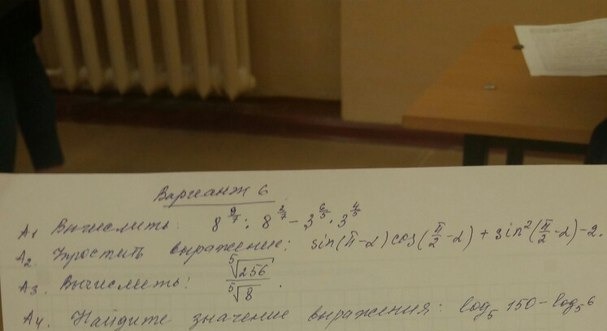 Вариант 6
А1 Вычислить: 8^{9/7} : 8^{2/7} - 3^{6/5} · 3^{4/5}
А2. Упростить выражение: sin(π-α)cos(π/2-α) + sin²(π/2-α)-2.
А3. Вычислить: ⁵√256 / ⁵√8.
А4. Найдите значение выражения: log₅ 150 - log₅ 6